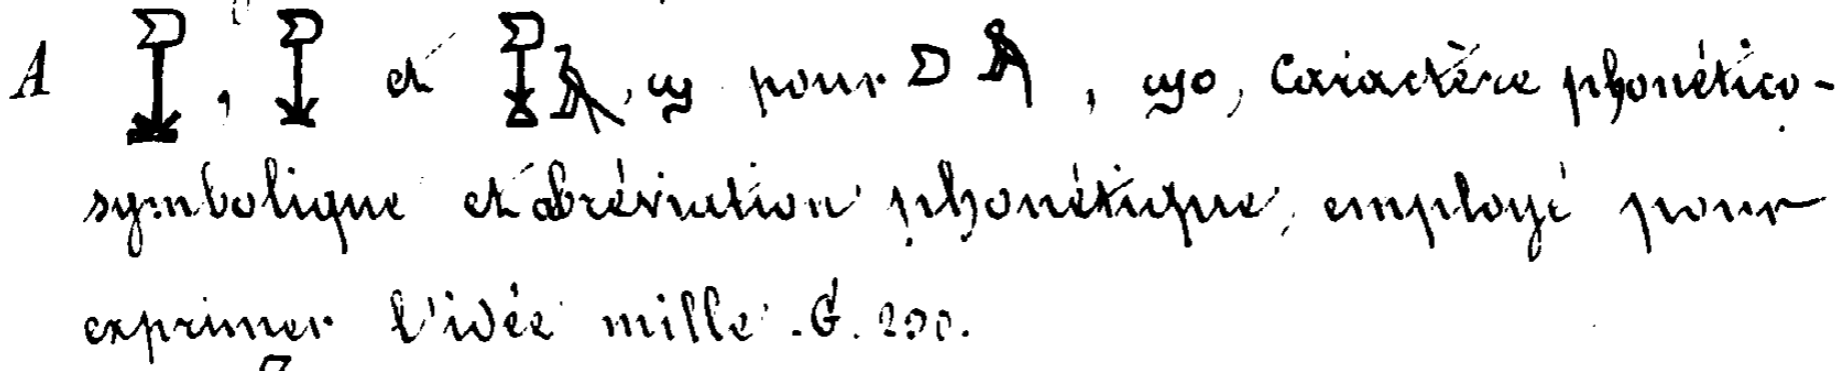 A 𓆼, 𓆼 et 𓆼𓄿, ϣ pour 𓈙𓄿, ϣο, Caractère phonético-
symbolique et abréviation phonétique, employé pour
exprimer l'idée mille. G. 290.